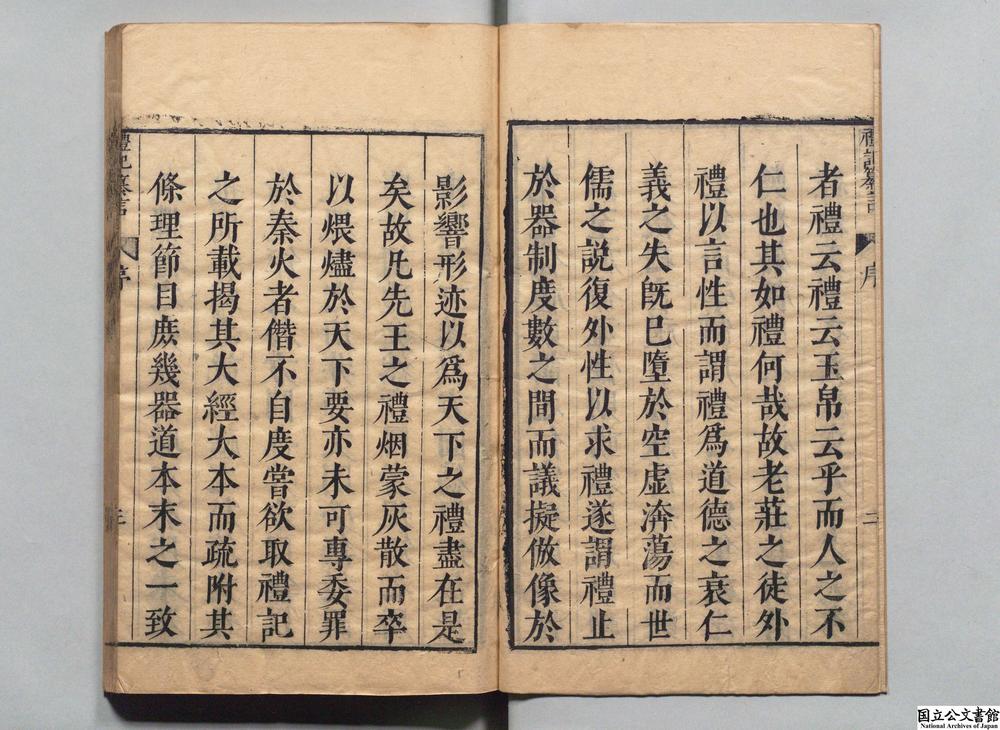 禮記纂言
序
二
者禮云禮云玉帛云乎而人之不
仁也其如禮何哉故老莊之徒外
禮以言性而謂禮爲道德之衰仁
義之失旣已墮於空虛渀蕩而世
儒之說復外性以求禮遂謂禮止
於器制度數之間而議擬倣像於
影響形迹以爲天下之禮盡在是
矣故凡先王之禮烟蒙灰散而卒
以煨燼於天下要亦未可專委罪
於秦火者僭不自度嘗欲取禮記
之所載揭其大經大本而疏附其
條理節目庻幾器道本末之一致
禮記纂言
序
三
国立公文書館
National Archives of Japan